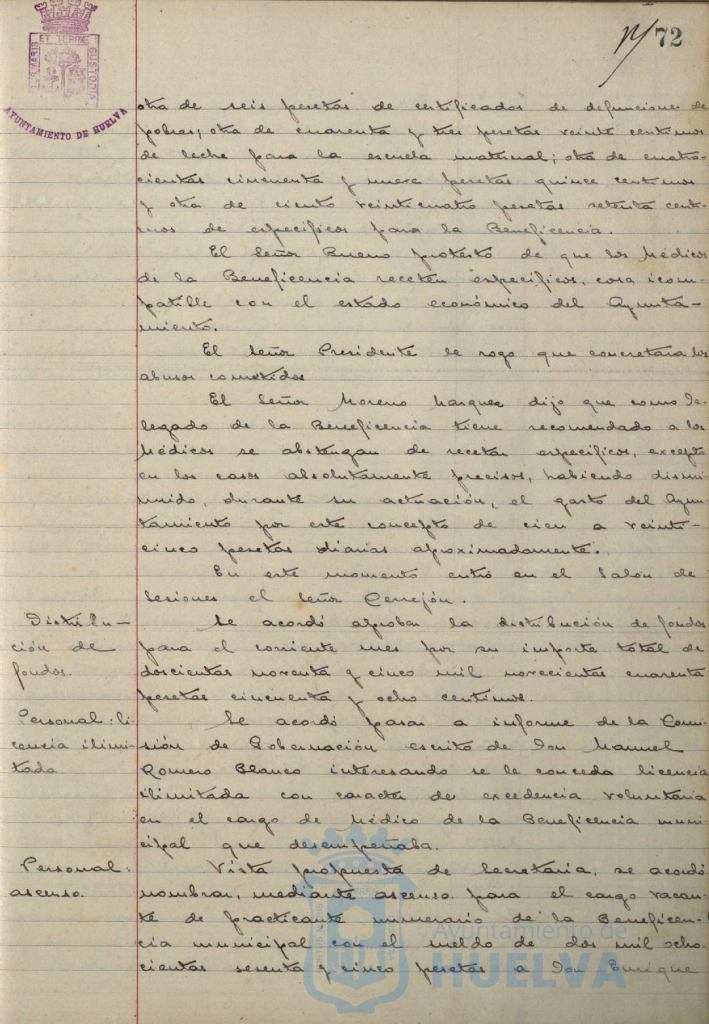 72
PORTUS MARIS ET TERRE CUSTODIA
AYUNTAMIENTO DE HUELVA
otra de seis pesetas de certificados de defunciones de
pobres; otra de cuarenta y tres pesetas veinte centimos
de leche para la escuela maternal; otra de cuatro-
cientas cincuenta y nueve pesetas quince centimos
y otra de ciento veinticuatro pesetas setenta centi-
mos de específicos para la Beneficencia.
El Señor Bueno protestó de que los Médicos
de la Beneficencia receten específicos, cosa icom-
patible con el estado económico del Ayunta-
miento.
El Señor Presidente le rogo que concretara los
abusos cometidos
El Señor Moreno Marquez dijo que como De-
legado de la Beneficencia tiene recomendado a los
Médicos se abstengan de recetar específicos, excepto
en los casos absolutamente precisos, habiendo dismi-
nuido, durante su actuación, el gasto del Ayun-
tamiento por este concepto de cien a veinti-
cinco pesetas diarias aproximadamente.
En este momento entró en el Salón de
Sesiones el Señor Cerrejón.
Distribu-
ción de
fondos.
Se acordó aprobar la distribución de fondos
para el corriente mes por su importe total de
doscientas noventa y cinco mil novecientas cuarenta
pesetas cincuenta y ocho centimos.
Personal: li-
cencia ilimi-
tada.
Se acordó pasar a informe de la Comi-
sión de Gobernación escrito de Don Manuel
Romero Blanco interesando se le conceda licencia
ilimitada con caracter de excedencia voluntaria
en el cargo de Médico de la Beneficencia muni-
cipal que desempeñaba.
Personal:
ascenso.
Vista propuesta de Secretaria, se acordó
nombrar, mediante ascenso para el cargo vacan-
te de practicante numerario de la Beneficen-
cia municipal con el sueldo de dos mil ocho-
cientas sesenta y cinco pesetas a Don Enrique
Ayuntamiento de
HUELVA